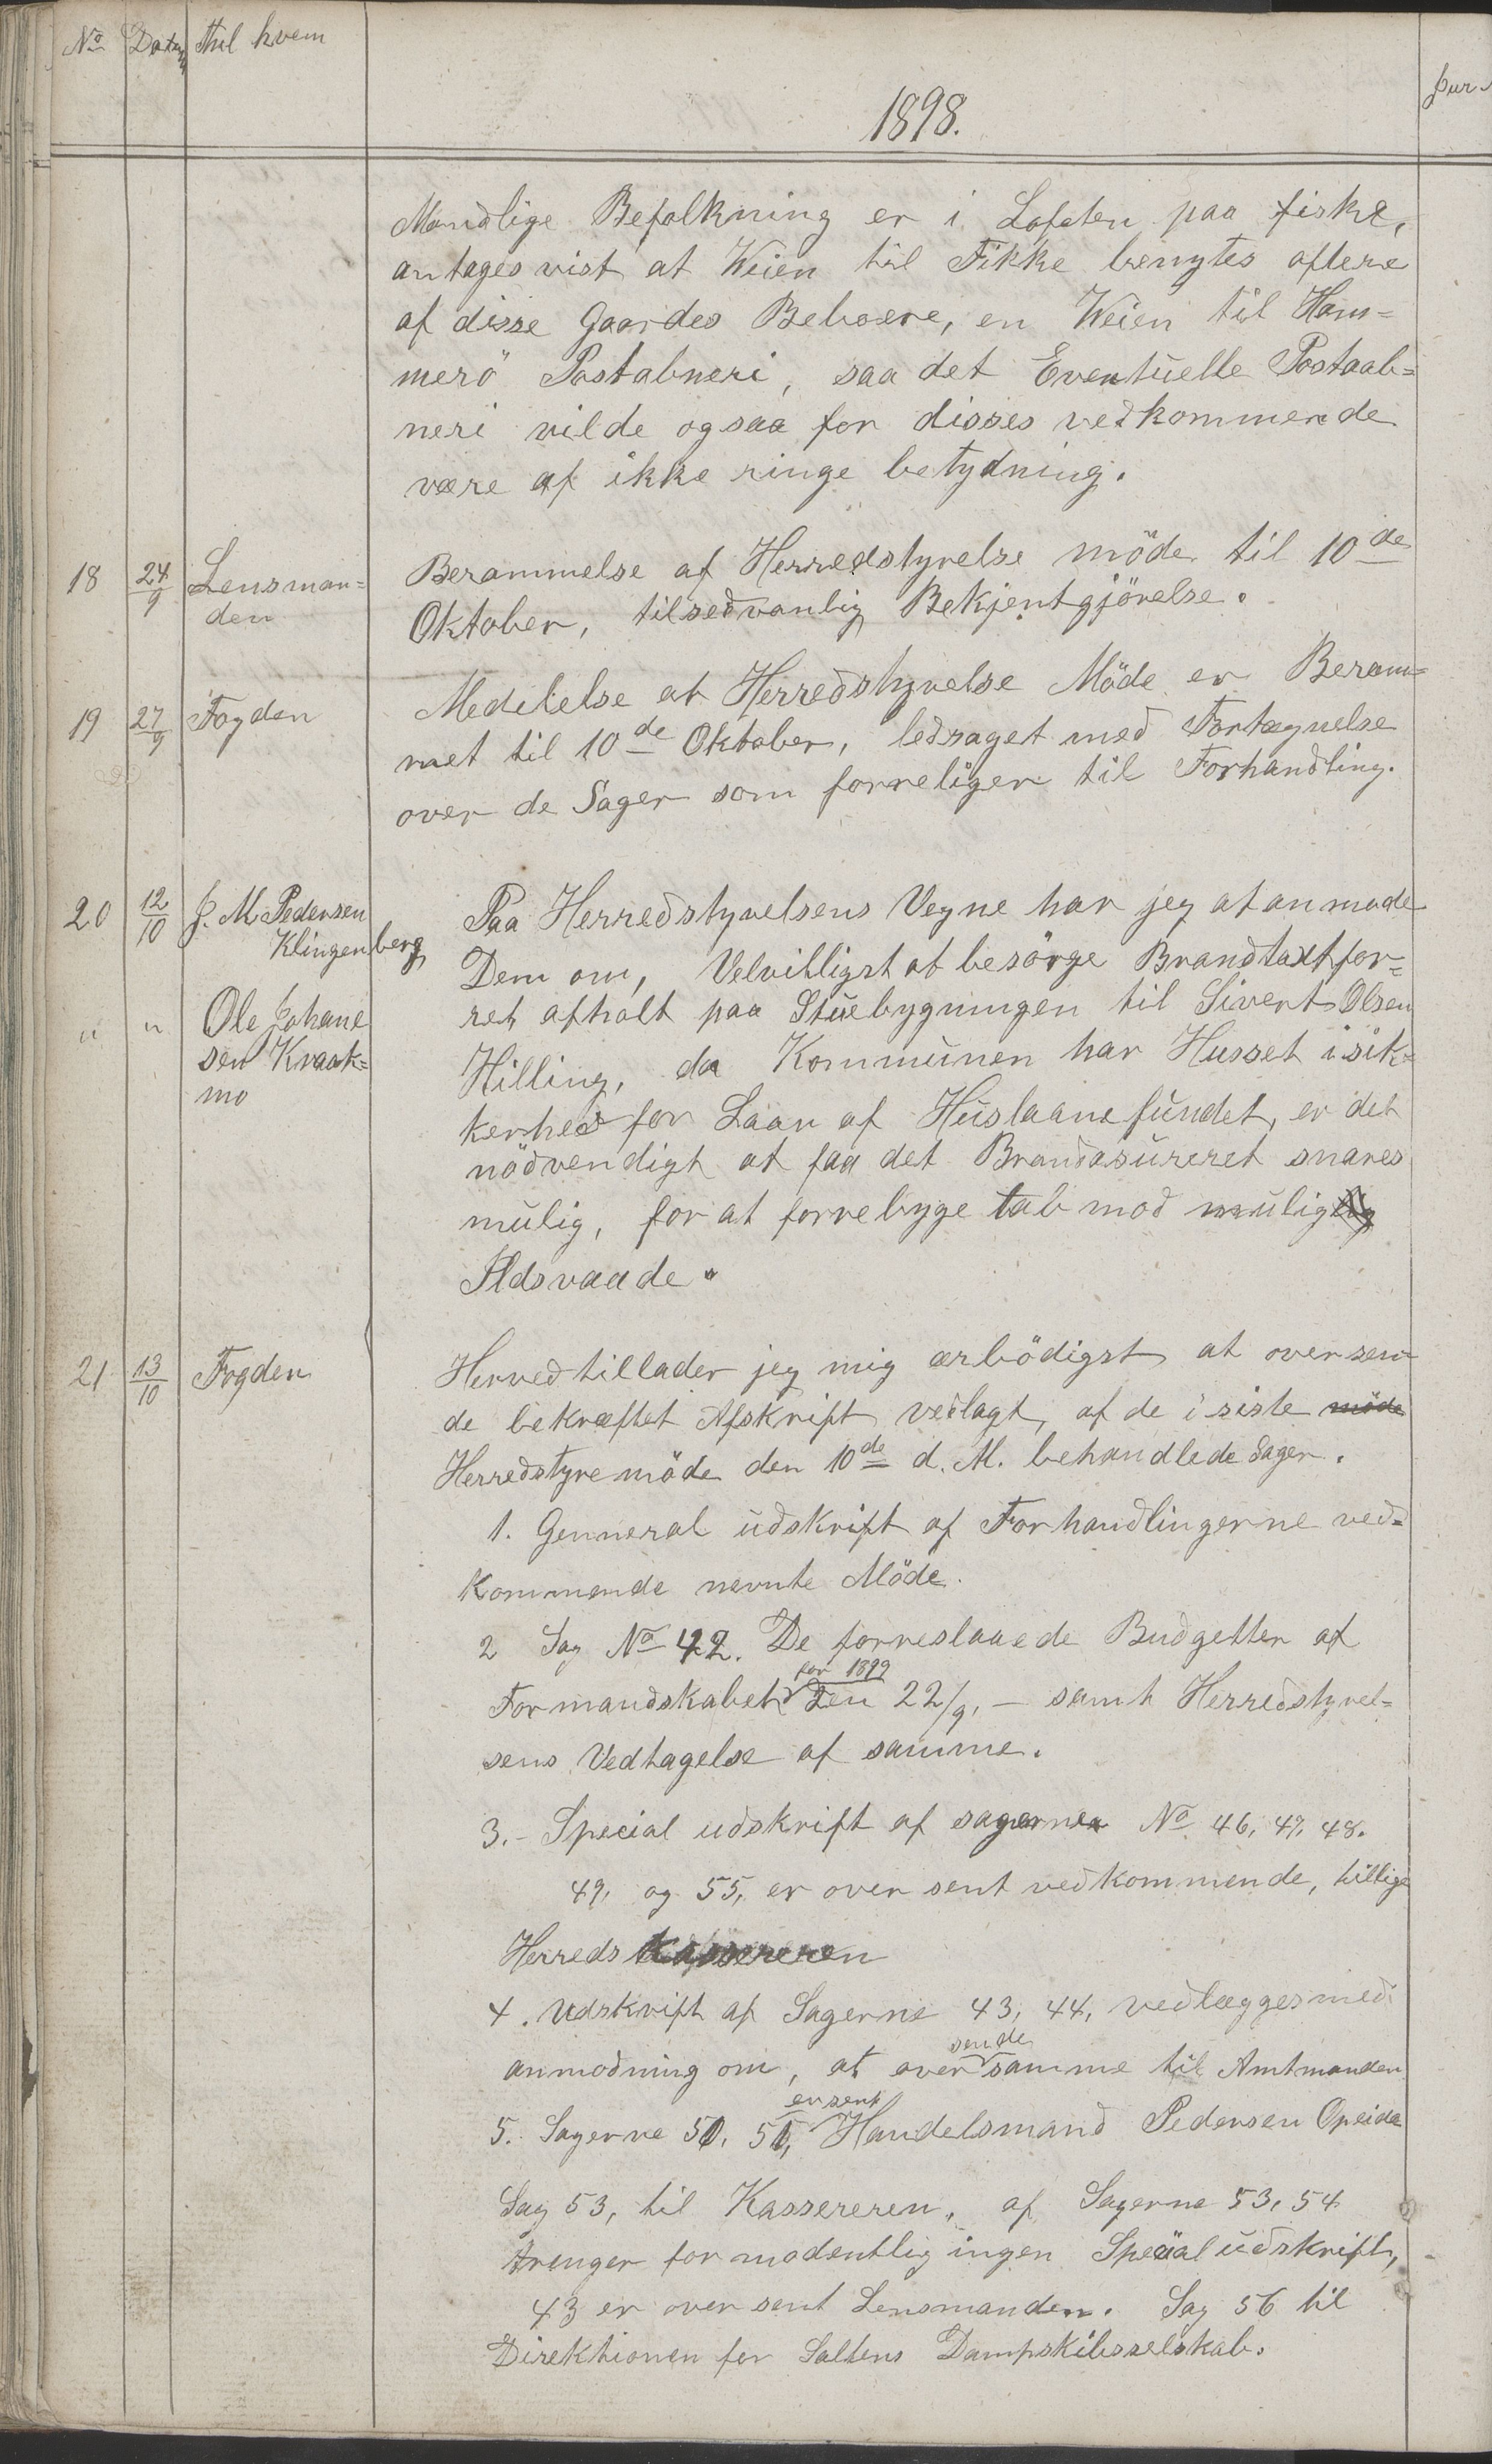 No Datum Thil hvem
Jur
1898.
Mandlige Befolkning er i Lofoten paa fiske,
antages vist at Veien til Fikke benytes oftere
af disse Gaardes Beboere, en Veien til Ham=
merö Postabneri, saa det Eventuelle Postaab=
neri vilde ogsaa for disses vedkommende
være af ikke ringe betydning.
18 24/9 Lensman=
den
Berammelse af Herredstyrelse möde til 10de
Oktober, tilsedvanlig Bekjentgjörelse.
19 27/9 Fogden
Medelelse at Herredstyrelse Möde er Beram=
met til 10de Oktober, ledsaget med Fortegnelse
over de Sager som forreliger til Forhandling.
20 12/10 J. M. Pedersen
Klingenberg
" " Ole Johane
sen Kraak=
mo
Paa Herredstyrelsens Vegne har jeg at anmode
Dem om, Velvilligst at besörge Brandtaxtfor=
ret afholt paa Stuebygningen til Sivert Olsen
Hilling, da Kommunen har Husset i sik=
kerhed for Laan af Huslaanefundet, er det
nödvendigt at faa det Brandasureret snares
mulig, for at forrebyge tab mod mulig
Ildsvaade.
21 13/10 Fogden
Herved tillader jeg mig ærbödigst at oversen
de bekræftet Afskrift vedlagt, af de i siste möde
Herredstyremöde den 10de d. M. behandlede Sager.
1. Genneral udskrift af Forhandlingerne ved=
kommende nevnte Möde.
2 Sag No 42. De forreslaaede Budgetter af
for 1899
Formandskabet den 22/9, - samt Herredstyrel=
sens Vedtagelse af samme.
3.- Special udskrift af sagerne No 46, 47, 48.
49, og 55, er over sent vedkommende, tillige
Herreds Kassereren
4. Udskrift af Sagerne 43, 44, vedlægges med
sende
anmodning om, at over samme til Amtmanden
er sent
5. Sagerne 50, 51, Handelsmand Pedersen Opeide
Sag 53, til Kassereren, af Sagerne 53, 54
trenger formodentlig ingen Special udskrift,
43 er over sent Lensmanden. Sag 56 til
Direktionen for Saltens Dampskibsselskab.